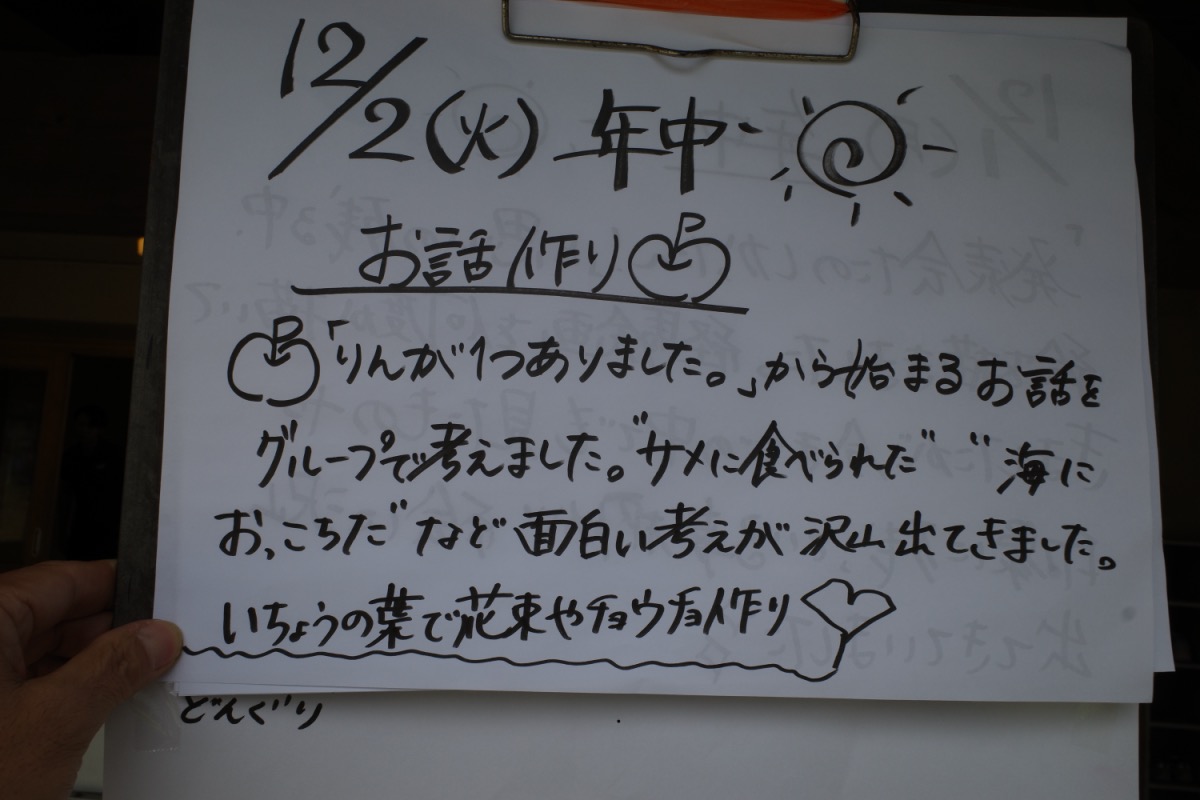 12/2(火) 年中
お話作り
「りんが1つありました。」から始まるお話を
グループで考えました。"サメに食べられた" "海に
おっこちた" など面白い考えが沢山出てきました。
いちょうの葉で花束やチョウチョ作り
どんぐり